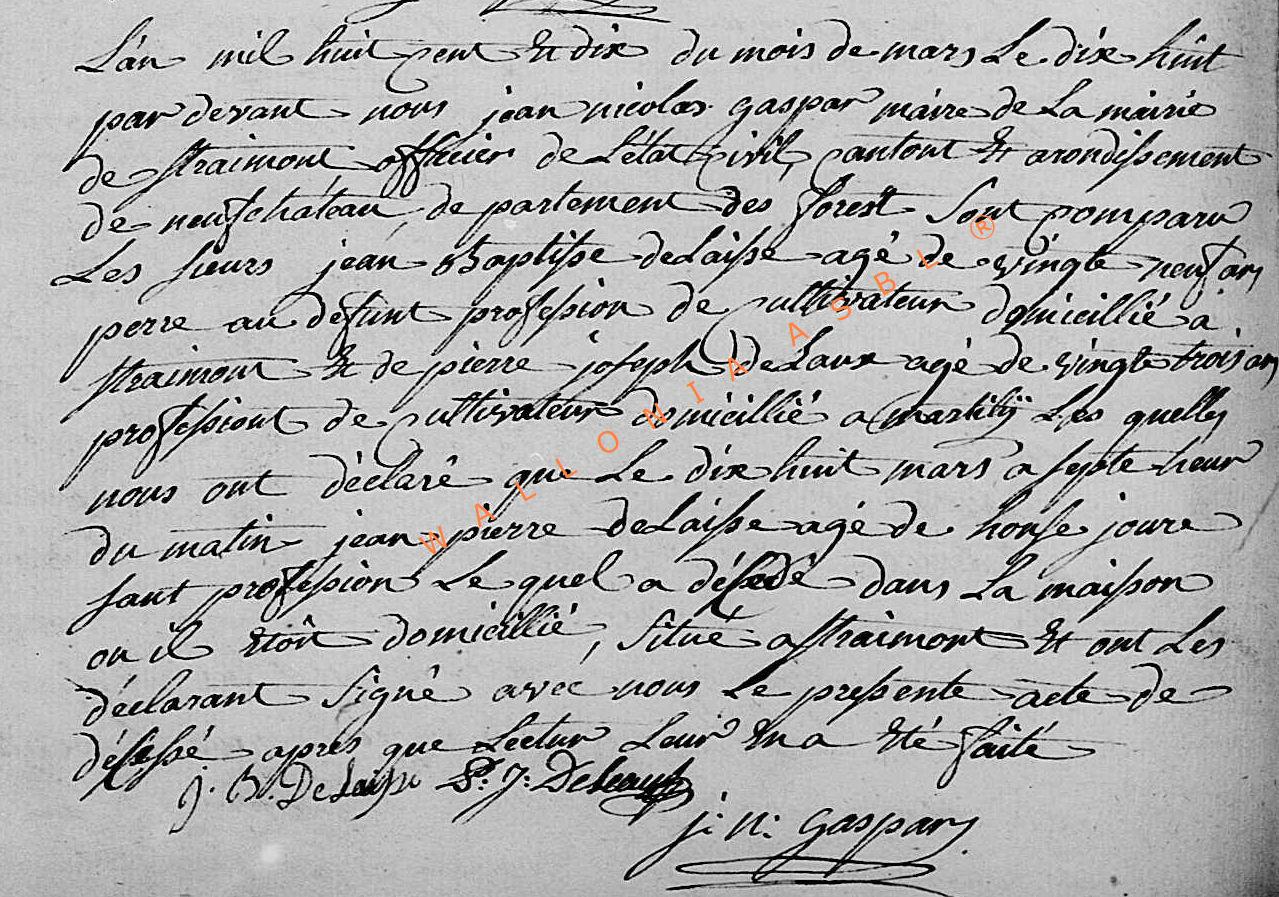 L'an mil huit cent et dix du mois de mars Le dix huit
par devant nous jean nicolas gaspar maire de La mairie
de straimont officier de L'état Civil, cantont et arondissement
de neufchâteau, de partement des forest sont comparu
Les sieurs jean Baptisse deLaisse agé de vingte neuf ans
perre au defunt profession de cultivateur domicillié a
straimont et de pierre joseph deLaux agé de vingte trois ans
professiont de cultivateur domicillié a martilij Les quelles
nous ont déclaré que Le dix huit mars a septe heur
du matin jean pierre deLaisse agé de honse joure
sant profession Le quel a désedé dans La maison
ou il etoit domicillié, situé a straimont et ont Les
déclarant signé avec nous Le pressente acte de
désessé apres que Lectur Leur en a eté faité
j. B. DeLaisse P. J. DeLeaux
j. n. gaspar
WALLONIA ASBL ®